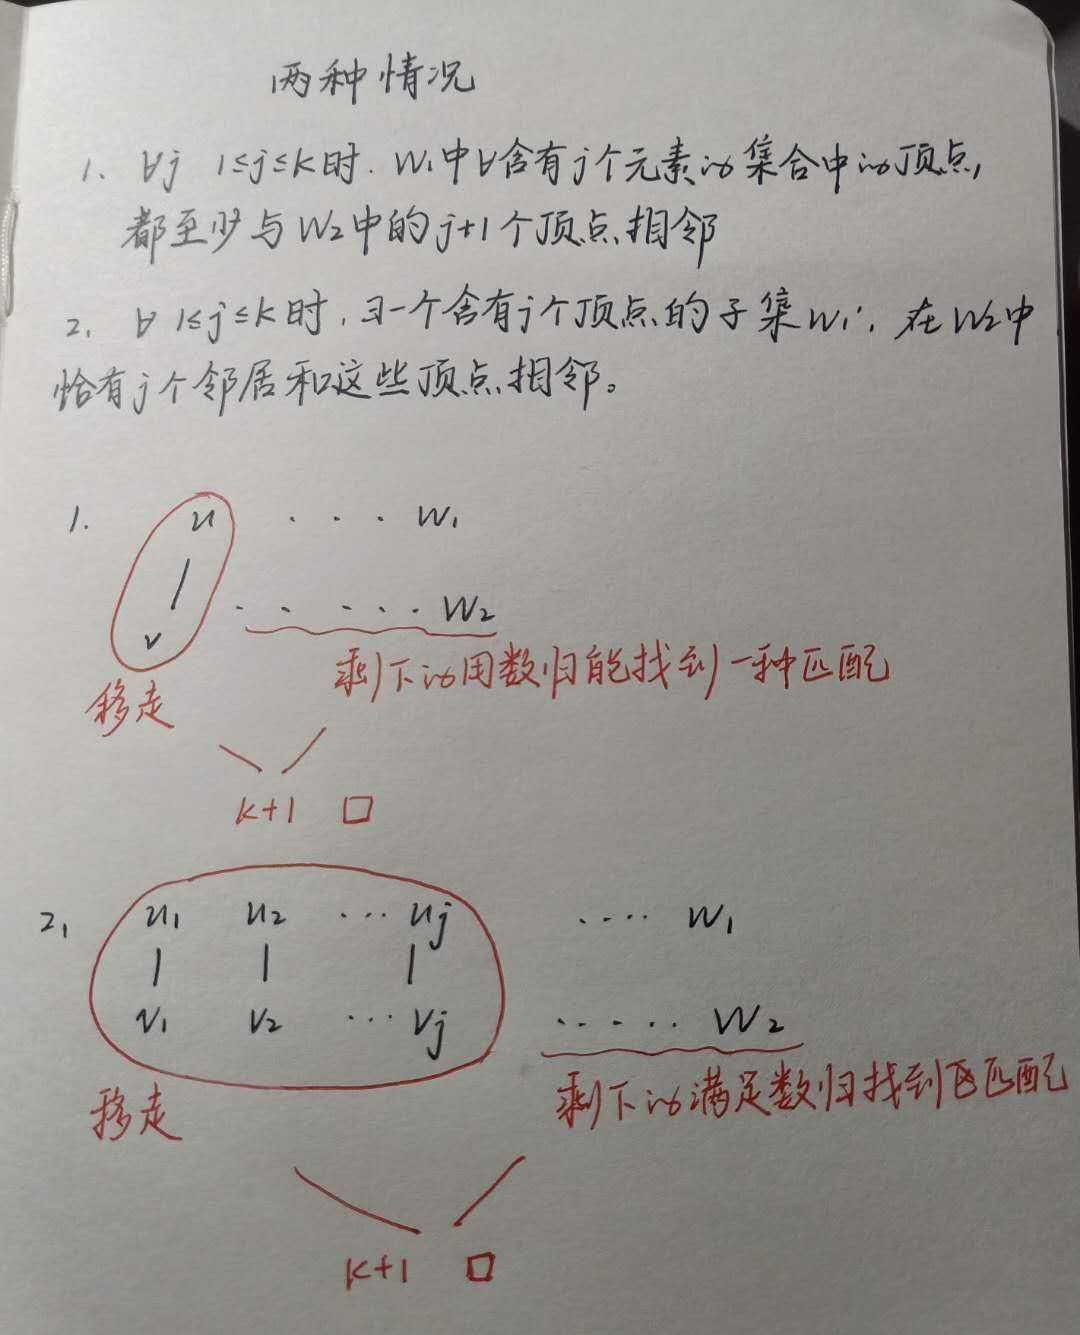 两种情况
1、∀j 1≤j≤k时. W₁中∀含有j个元素的集合中的顶点,
都至少与W₂中的j+1个顶点相邻
2、∀ 1≤j≤k时,∃一个含有j个顶点的子集W₁', 在W₂中
恰有j个邻居和这些顶点相邻。
1. u . . . W₁
|
v . . . . . W₂
移走 剩下的用数归能找到一种匹配
k+1 □
2, u₁ u₂ ... uⱼ .... W₁
| | |
v₁ v₂ ... vⱼ ..... W₂
移走 剩下的满足数归找到匹配
k+1 □